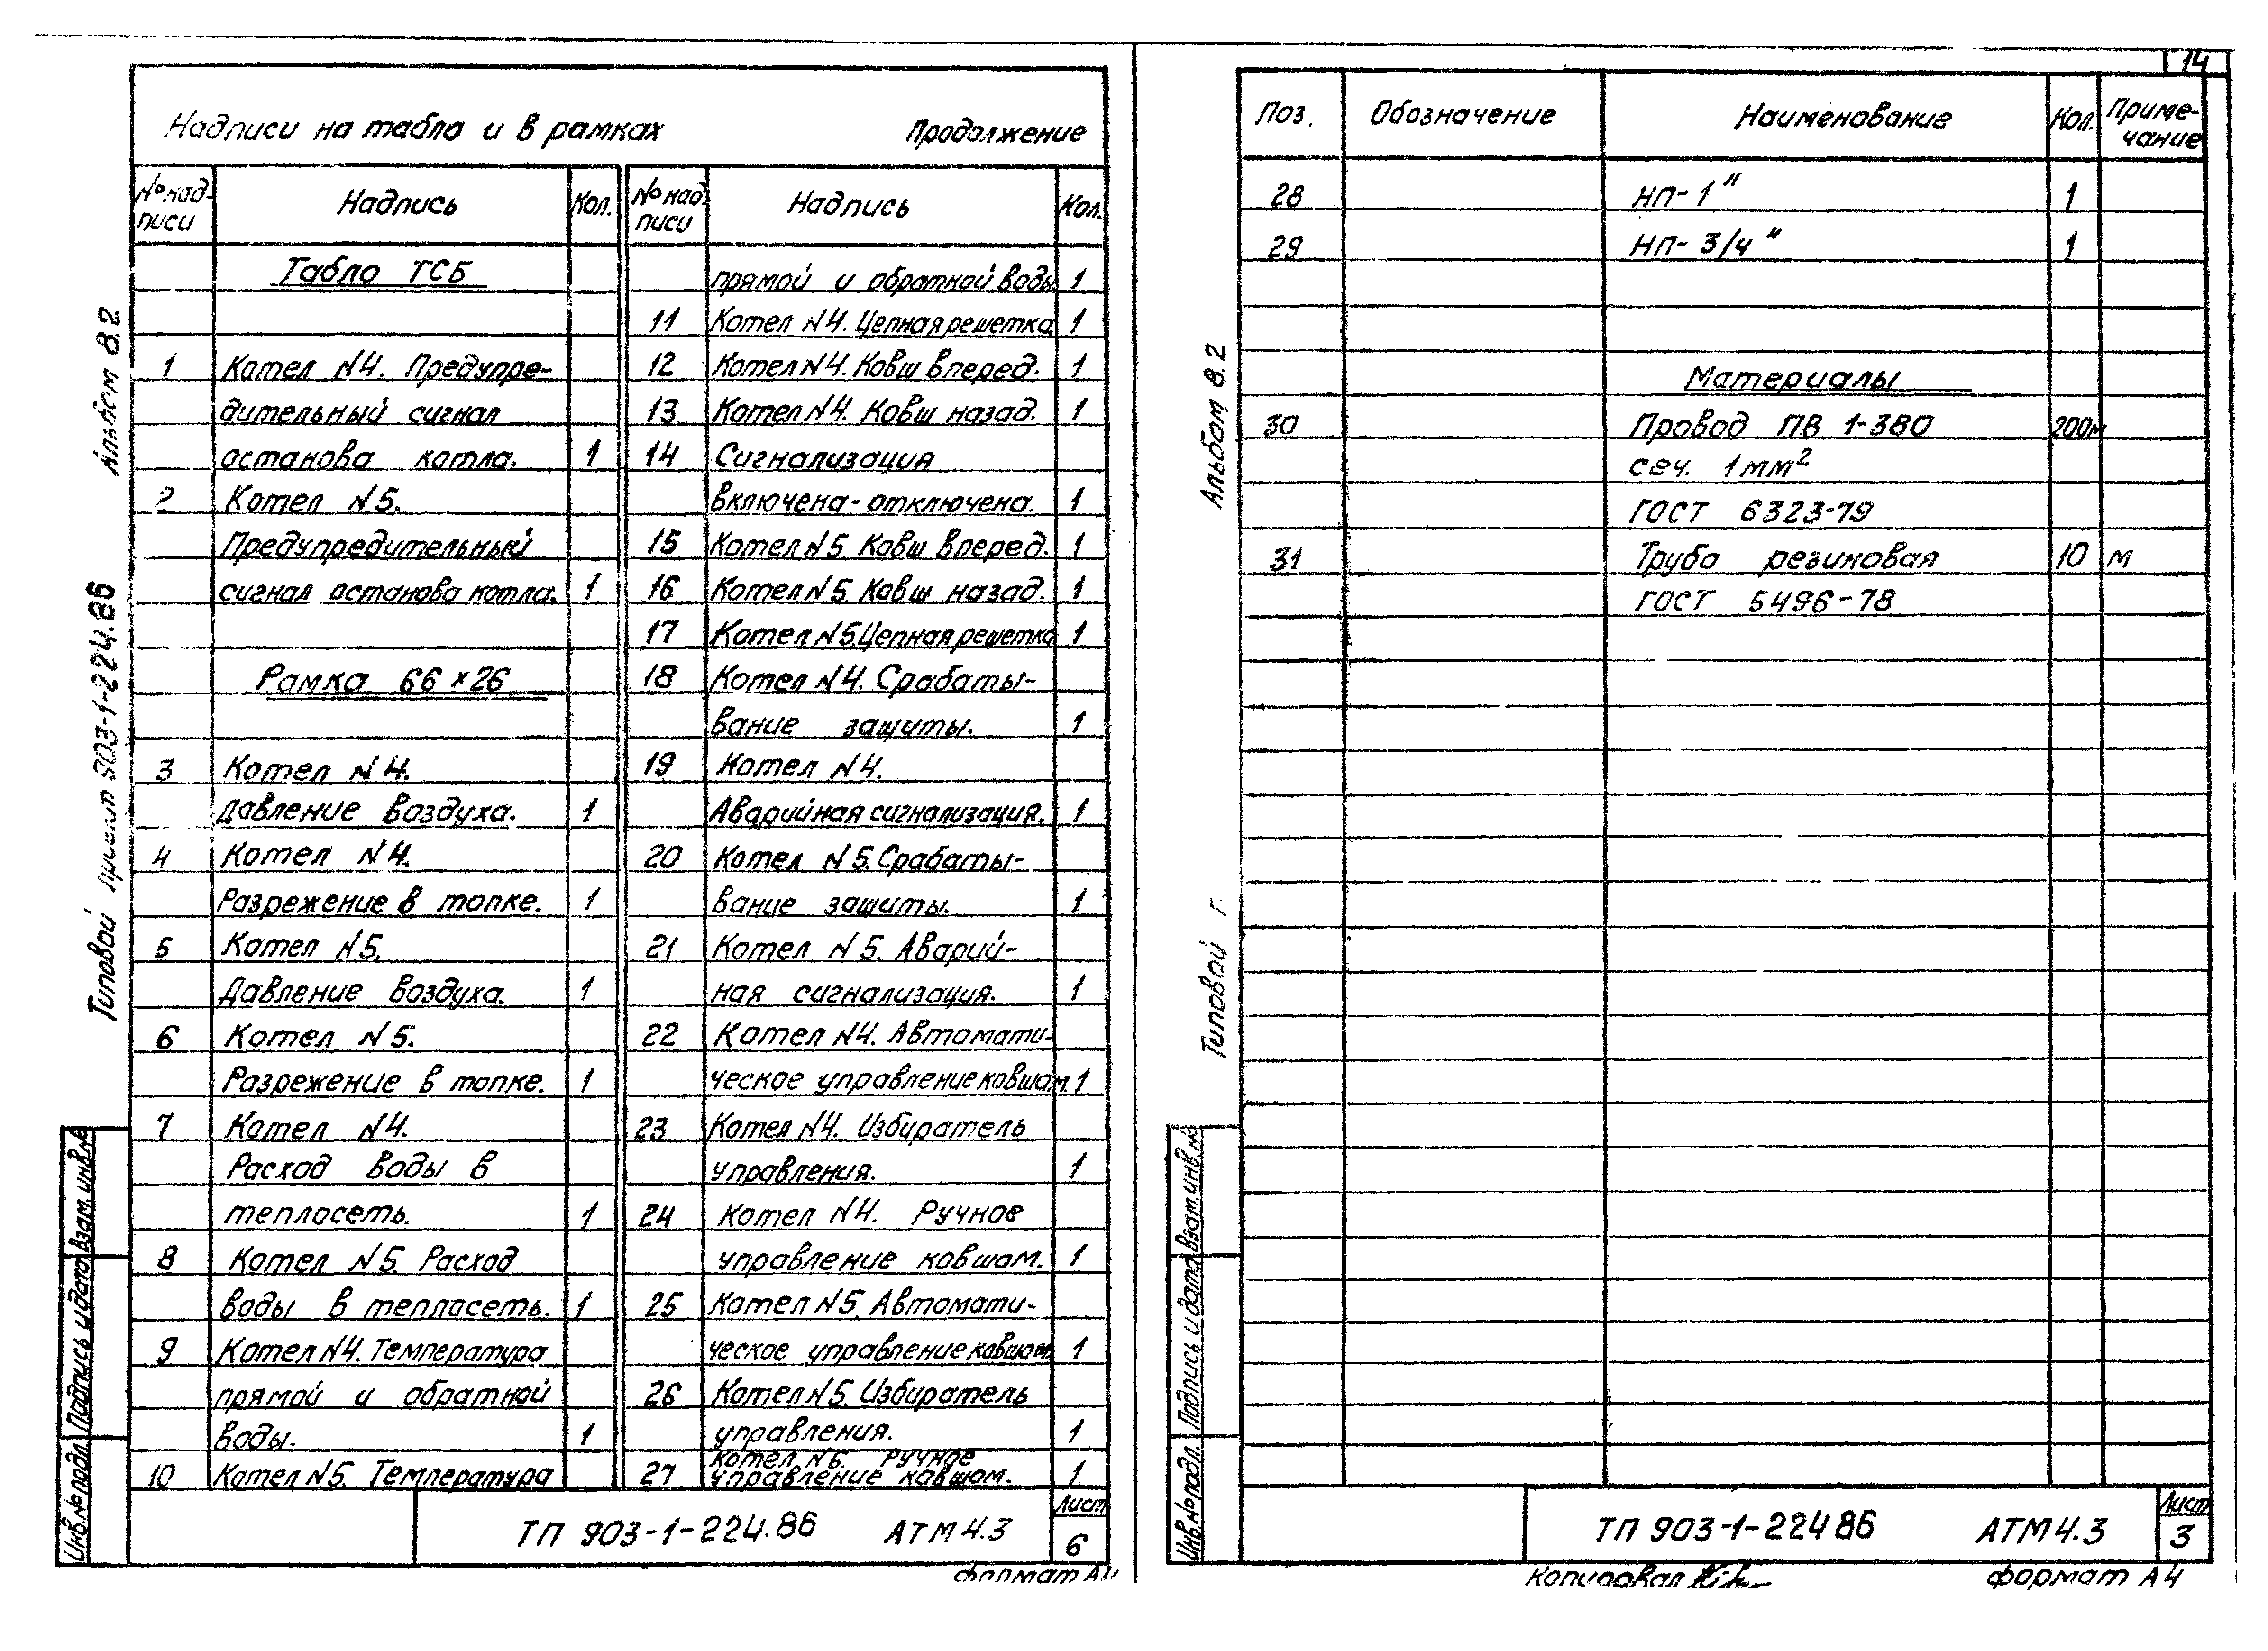 14
Надписи на табло и в рамках Продолжение
№ над-писи Надпись Кол. № над-писи Надпись Кол.
Табло ТСБ
1 Котел №4. Предупре-
дительный сигнал
останова котла. 1
2 Котел №5.
Предупредительный
сигнал останова котла. 1
Рамка 66×26
3 Котел №4.
Давление воздуха. 1
4 Котел №4.
Разрежение в топке. 1
5 Котел №5.
Давление воздуха. 1
6 Котел №5.
Разрежение в топке. 1
7 Котел №4.
Расход воды в
теплосеть. 1
8 Котел №5. Расход
воды в теплосеть. 1
9 Котел №4. Температура
прямой и обратной
воды. 1
10 Котел №5. Температура
прямой и обратной воды 1
11 Котел №4. Цепная решетка 1
12 Котел №4. Ковш вперед. 1
13 Котел №4. Ковш назад. 1
14 Сигнализация
включена-отключена. 1
15 Котел №5. Ковш вперед. 1
16 Котел №5. Ковш назад. 1
17 Котел №5. Цепная решетка 1
18 Котел №4. Срабаты-
вание защиты. 1
19 Котел №4.
Аварийная сигнализация. 1
20 Котел №5. Срабаты-
вание защиты. 1
21 Котел №5. Аварий-
ная сигнализация. 1
22 Котел №4. Автомати-
ческое управление ковшом. 1
23 Котел №4. Избиратель
управления. 1
24 Котел №4. Ручное
управление ковшом. 1
25 Котел №5. Автомати-
ческое управление ковшом 1
26 Котел №5. Избиратель
управления. 1
27 Котел №6. Ручное
управление ковшом. 1
ТП 903-1-224.86 АТМ4.3
Лист
6
формат А4
Типовой проект 903-1-224.86 Альбом 8.2
Инв.№ подл. Подпись и дата Взам.инв.№
Поз. Обозначение Наименование Кол. Приме-чание
28 НП-1" 1
29 НП-3/4" 1
Материалы
30 Провод ПВ 1-380 200м
сеч. 1мм²
ГОСТ 6323-79
31 Труба резиновая 10 м
ГОСТ 5496-78
ТП 903-1-224 86 АТМ4.3
Лист
3
Копировал
формат А4
Типовой Альбом 8.2
Инв.№ подл. Подпись и дата Взам.инв.№